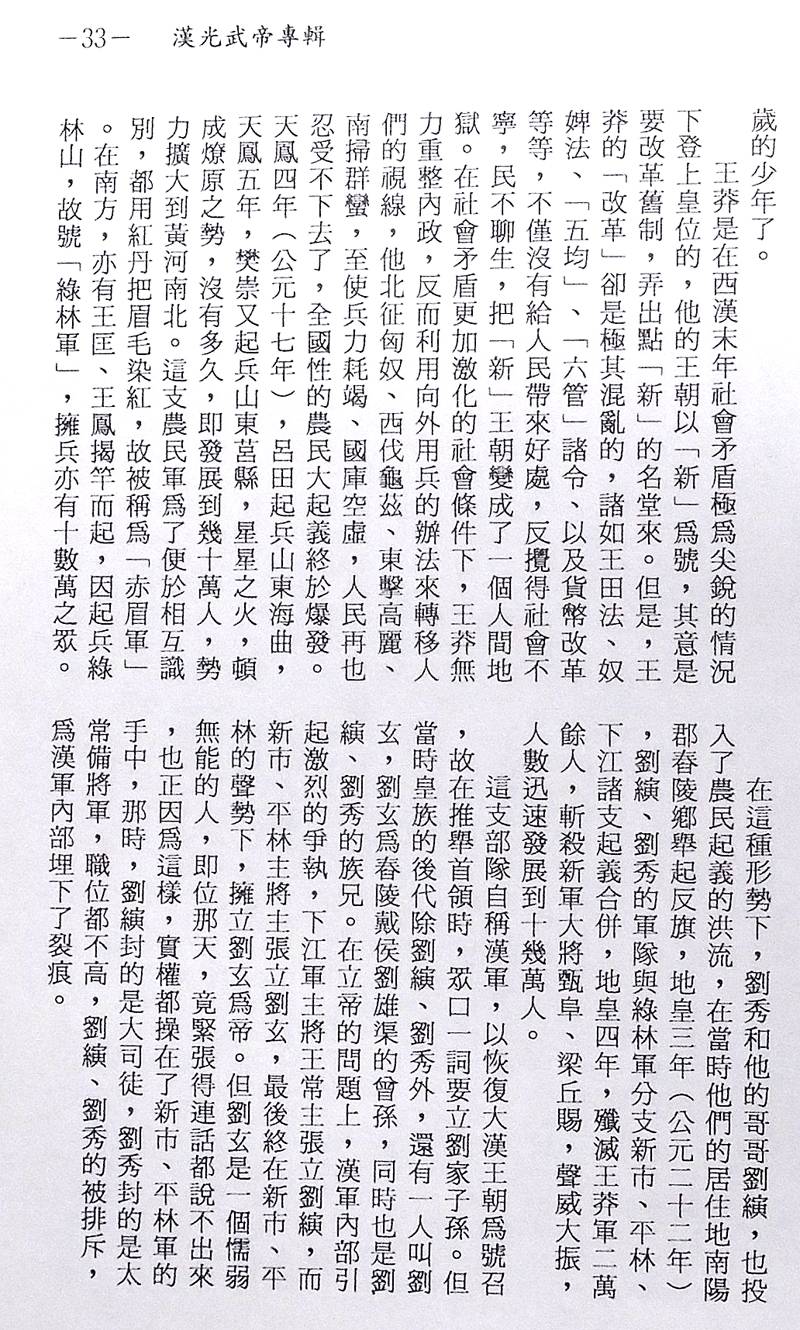 －33－　漢光武帝專輯
歲的少年了。
王莽是在西漢末年社會矛盾極爲尖銳的情況
下登上皇位的，他的王朝以「新」爲號，其意是
要改革舊制，弄出點「新」的名堂來。但是，王
莽的「改革」卻是極其混亂的，諸如王田法、奴
婢法、「五均」、「六管」諸令、以及貨幣改革
等等，不僅沒有給人民帶來好處，反攪得社會不
寧，民不聊生，把「新」王朝變成了一個人間地
獄。在社會矛盾更加激化的社會條件下，王莽無
力重整內政，反而利用向外用兵的辦法來轉移人
們的視線，他北征匈奴、西伐龜茲、東擊高麗、
南掃群蠻，至使兵力耗竭、國庫空虛，人民再也
忍受不下去了，全國性的農民大起義終於爆發。
天鳳四年（公元十七年），呂田起兵山東海曲，
天鳳五年，樊崇又起兵山東莒縣，星星之火，頓
成燎原之勢，沒有多久，即發展到幾十萬人，勢
力擴大到黃河南北。這支農民軍爲了便於相互識
別，都用紅丹把眉毛染紅，故被稱爲「赤眉軍」
。在南方，亦有王匡、王鳳揭竿而起，因起兵綠
林山，故號「綠林軍」，擁兵亦有十數萬之眾。
在這種形勢下，劉秀和他的哥哥劉縯，也投
入了農民起義的洪流，在當時他們的居住地南陽
郡舂陵鄉舉起反旗，地皇三年（公元二十二年）
，劉縯、劉秀的軍隊與綠林軍分支新市、平林、
下江諸支起義合併，地皇四年，殲滅王莽軍二萬
餘人，斬殺新軍大將甄阜、梁丘賜，聲威大振，
人數迅速發展到十幾萬人。
這支部隊自稱漢軍，以恢復大漢王朝爲號召
，故在推舉首領時，眾口一詞要立劉家子孫。但
當時皇族的後代除劉縯、劉秀外，還有一人叫劉
玄，劉玄爲舂陵戴侯劉雄渠的曾孫，同時也是劉
縯、劉秀的族兄。在立帝的問題上，漢軍內部引
起激烈的爭執，下江軍主將王常主張立劉縯，而
新市、平林主將主張立劉玄，最後終在新市、平
林的聲勢下，擁立劉玄爲帝。但劉玄是一個懦弱
無能的人，即位那天，竟緊張得連話都說不出來
，也正因爲這樣，實權都操在了新市、平林軍的
手中，那時，劉縯封的是大司徒，劉秀封的是太
常備將軍，職位都不高，劉縯、劉秀的被排斥，
爲漢軍內部埋下了裂痕。